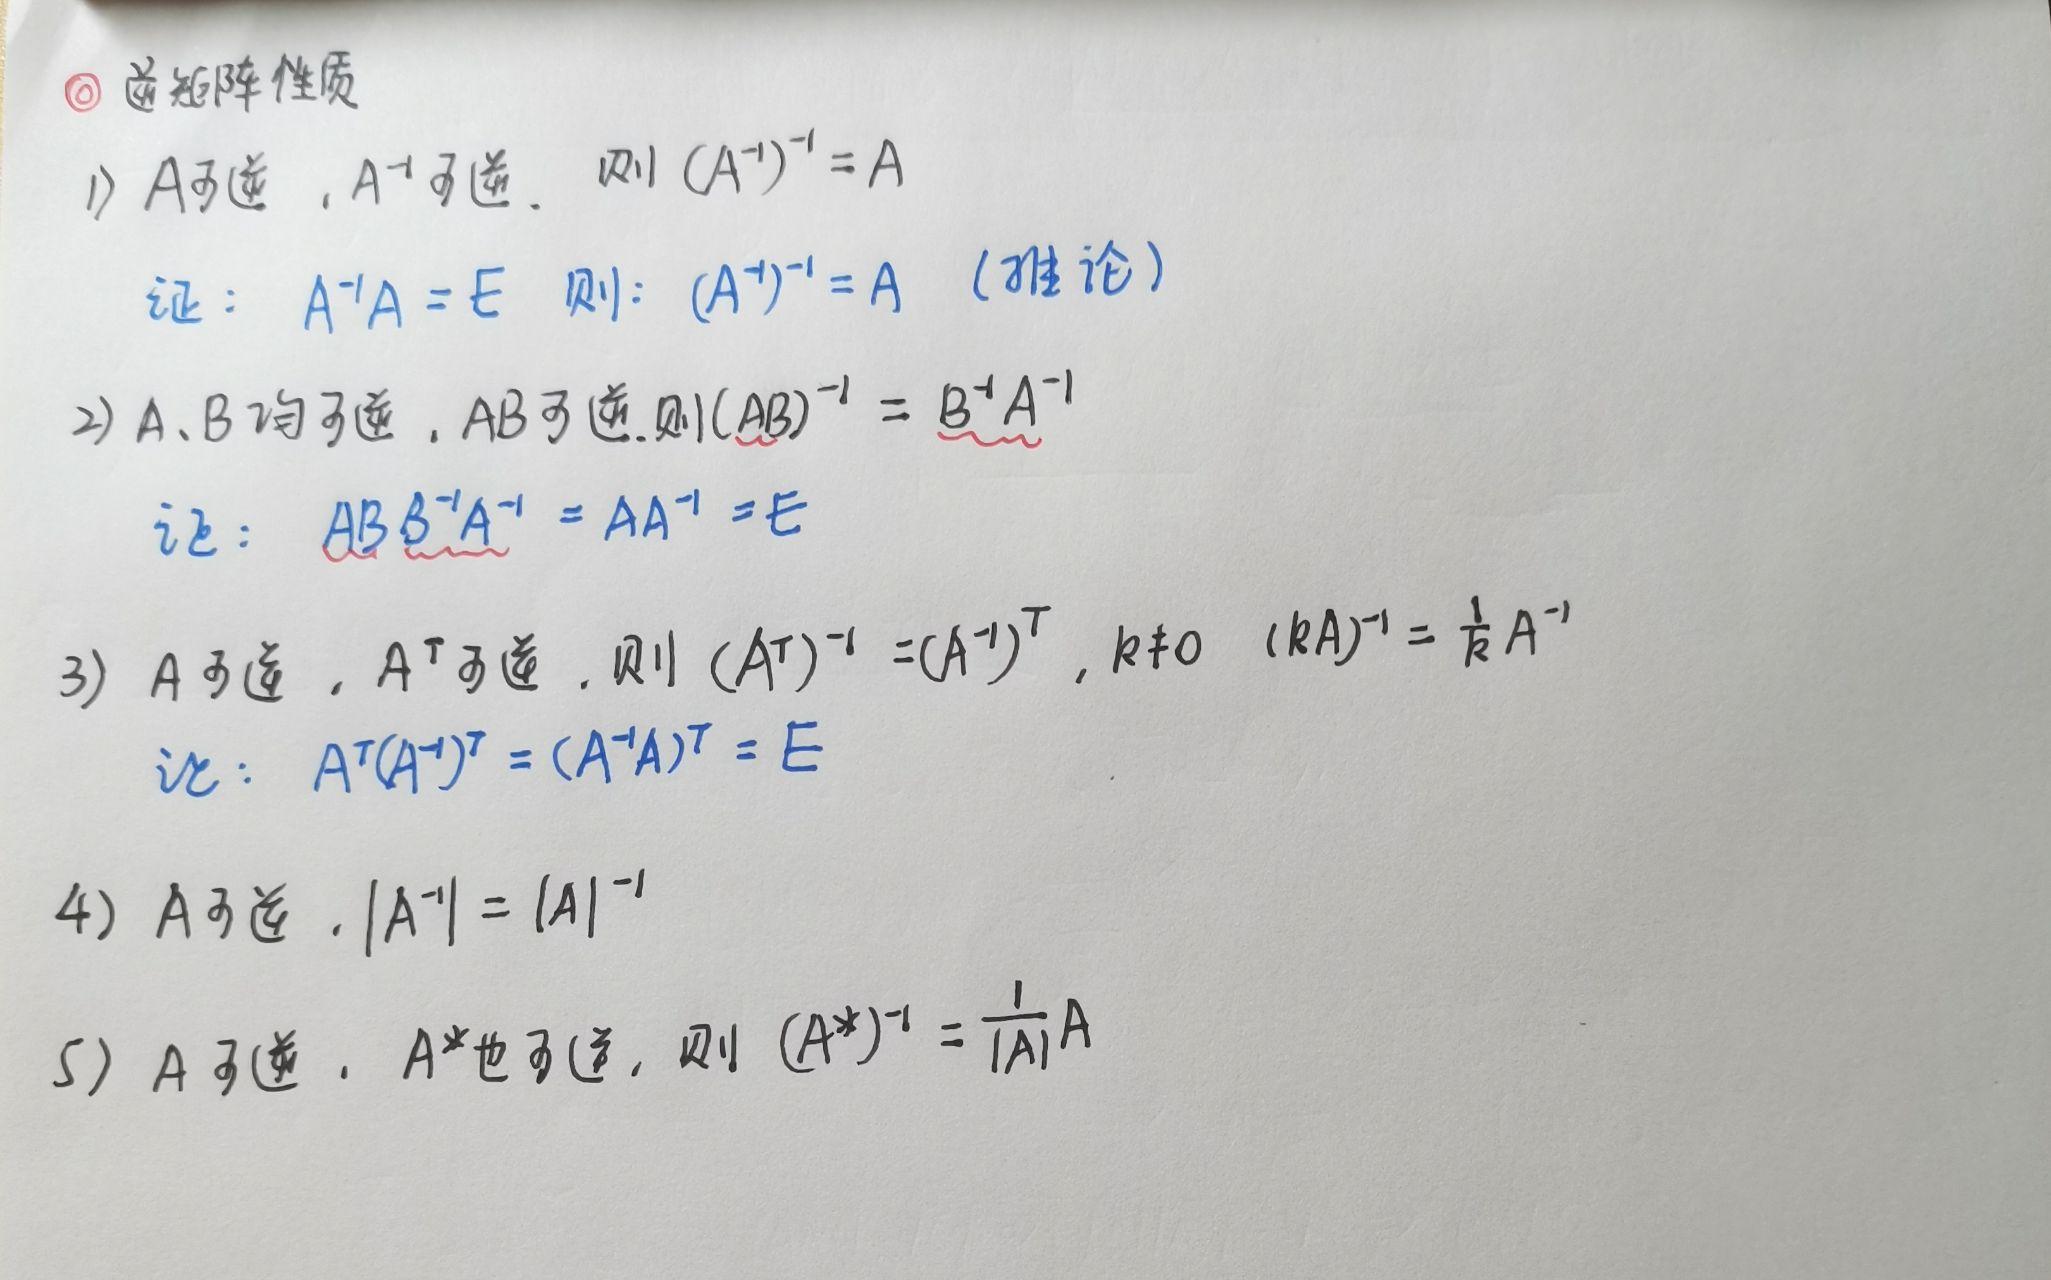 ◎ 逆矩阵性质
1) A可逆，A⁻¹可逆. 则 (A⁻¹)⁻¹ = A
证： A⁻¹A = E 则： (A⁻¹)⁻¹ = A （推论）
2) A、B均可逆，AB可逆.则(AB)⁻¹ = B⁻¹A⁻¹
证： ABB⁻¹A⁻¹ = AA⁻¹ = E
3) A可逆，Aᵀ可逆，则 (Aᵀ)⁻¹ = (A⁻¹)ᵀ，k≠0 (kA)⁻¹ = 1/k A⁻¹
证： Aᵀ(A⁻¹)ᵀ = (A⁻¹A)ᵀ = E
4) A可逆，|A⁻¹| = |A|⁻¹
5) A可逆，A*也可逆，则 (A*)⁻¹ = 1/|A| A